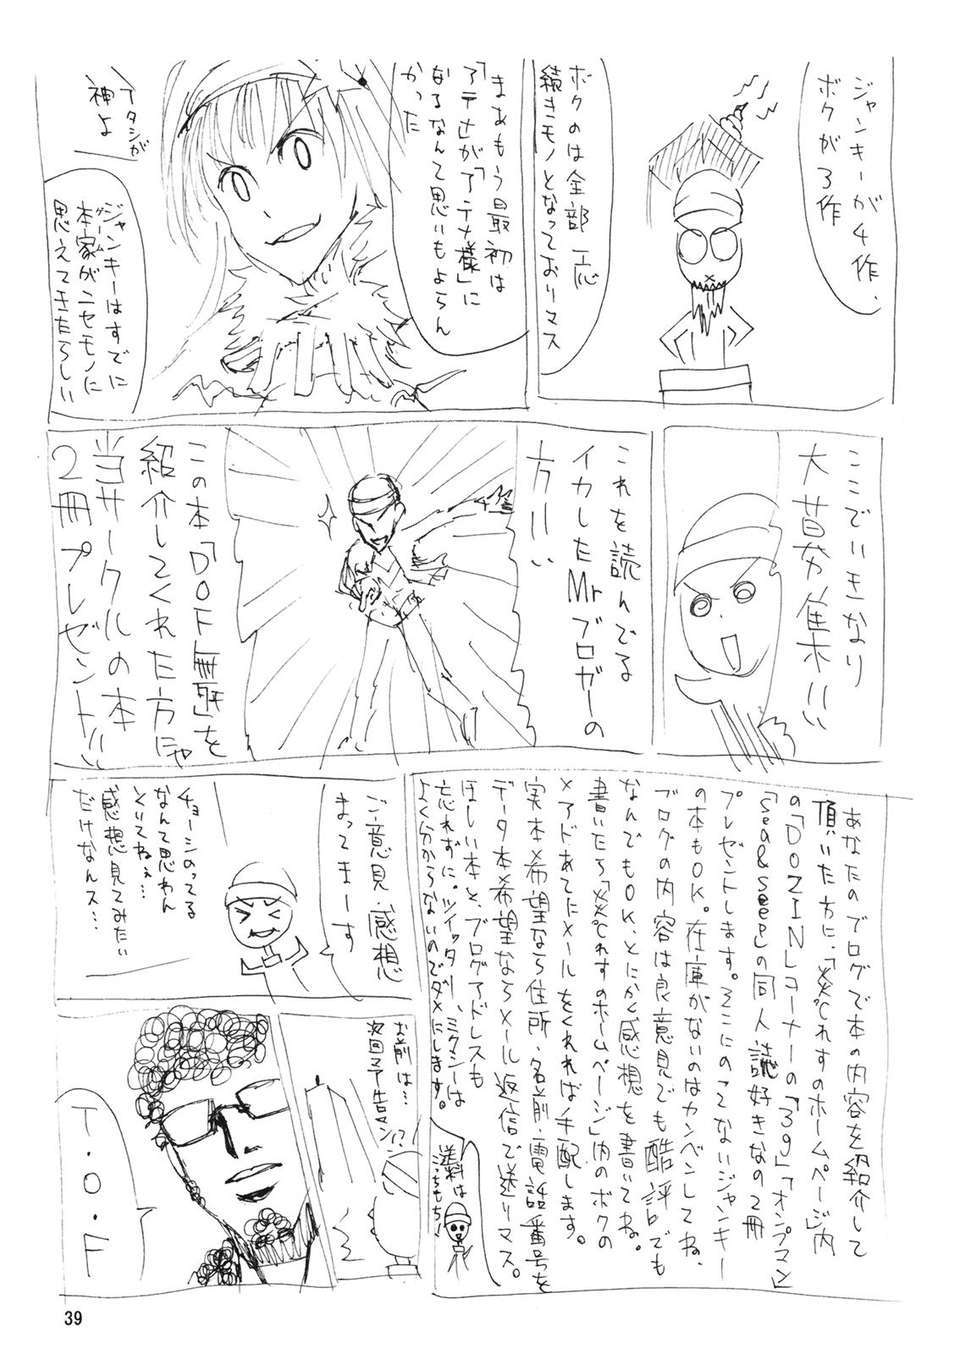 ジャンキーが4作、
ボクが3作
ボクのは全部一応
続きモノとなっておりマス
まあもう最初は
なるなんて思いもよらん
かった
アタシが
神よ
ジャンキーはすでに
本家がニセモノに
思えてきたらしい
ここでいきなり
大募集!!!
これを読んでる
イカしたMrブロガーの
方!!!い
この本「DOF無限」を
紹介してくれた方にゃ
当サークルの本
2冊プレゼント!!!
あなたのブログで本の内容を紹介して
頂いた方に、「炎でれすのホームページ」内
の「DOZINコーナーの「39」「オンプマン」
「Sea&Seep」の同人誌好きなの2冊
プレゼントします。そこにのってないジャンキー
の本もOK。在庫がないのはカンベンしてね。
ブログの内容は良意見でも酷評でも
なんでもOK、とにかく感想を書いてね。
書いたら「炎でれすのホームページ」内のボクの
メアドあてにメールをくれれば手配します。
実本希望なら住所・名前・電話番号を
データ本希望ならメール返信で送りマス。
ほしい本と、ブログアドレスも
忘れずに。ツイッター、ミクシーは
よく分からないのでダメにします。
送料は
こっちもち!
ご意見・感想
まってまーす
チョーシのってる
なんて思わん
といてねぇ…
感想見てみたい
だけなんス…
お前は…
次回予告マン!?
T.O.F
39